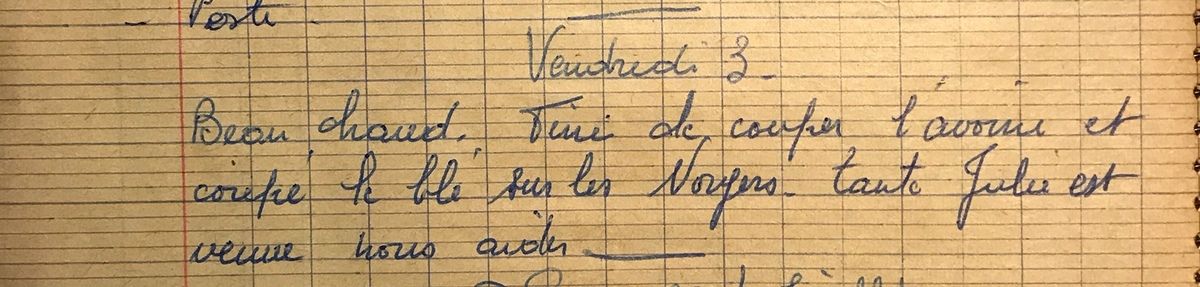 - Poste -
Vendredi 3 -
Beau, chaud. Fini de couper l'avoine et
coupé le blé sur les Noyers. tante Julie est
venue nous aider